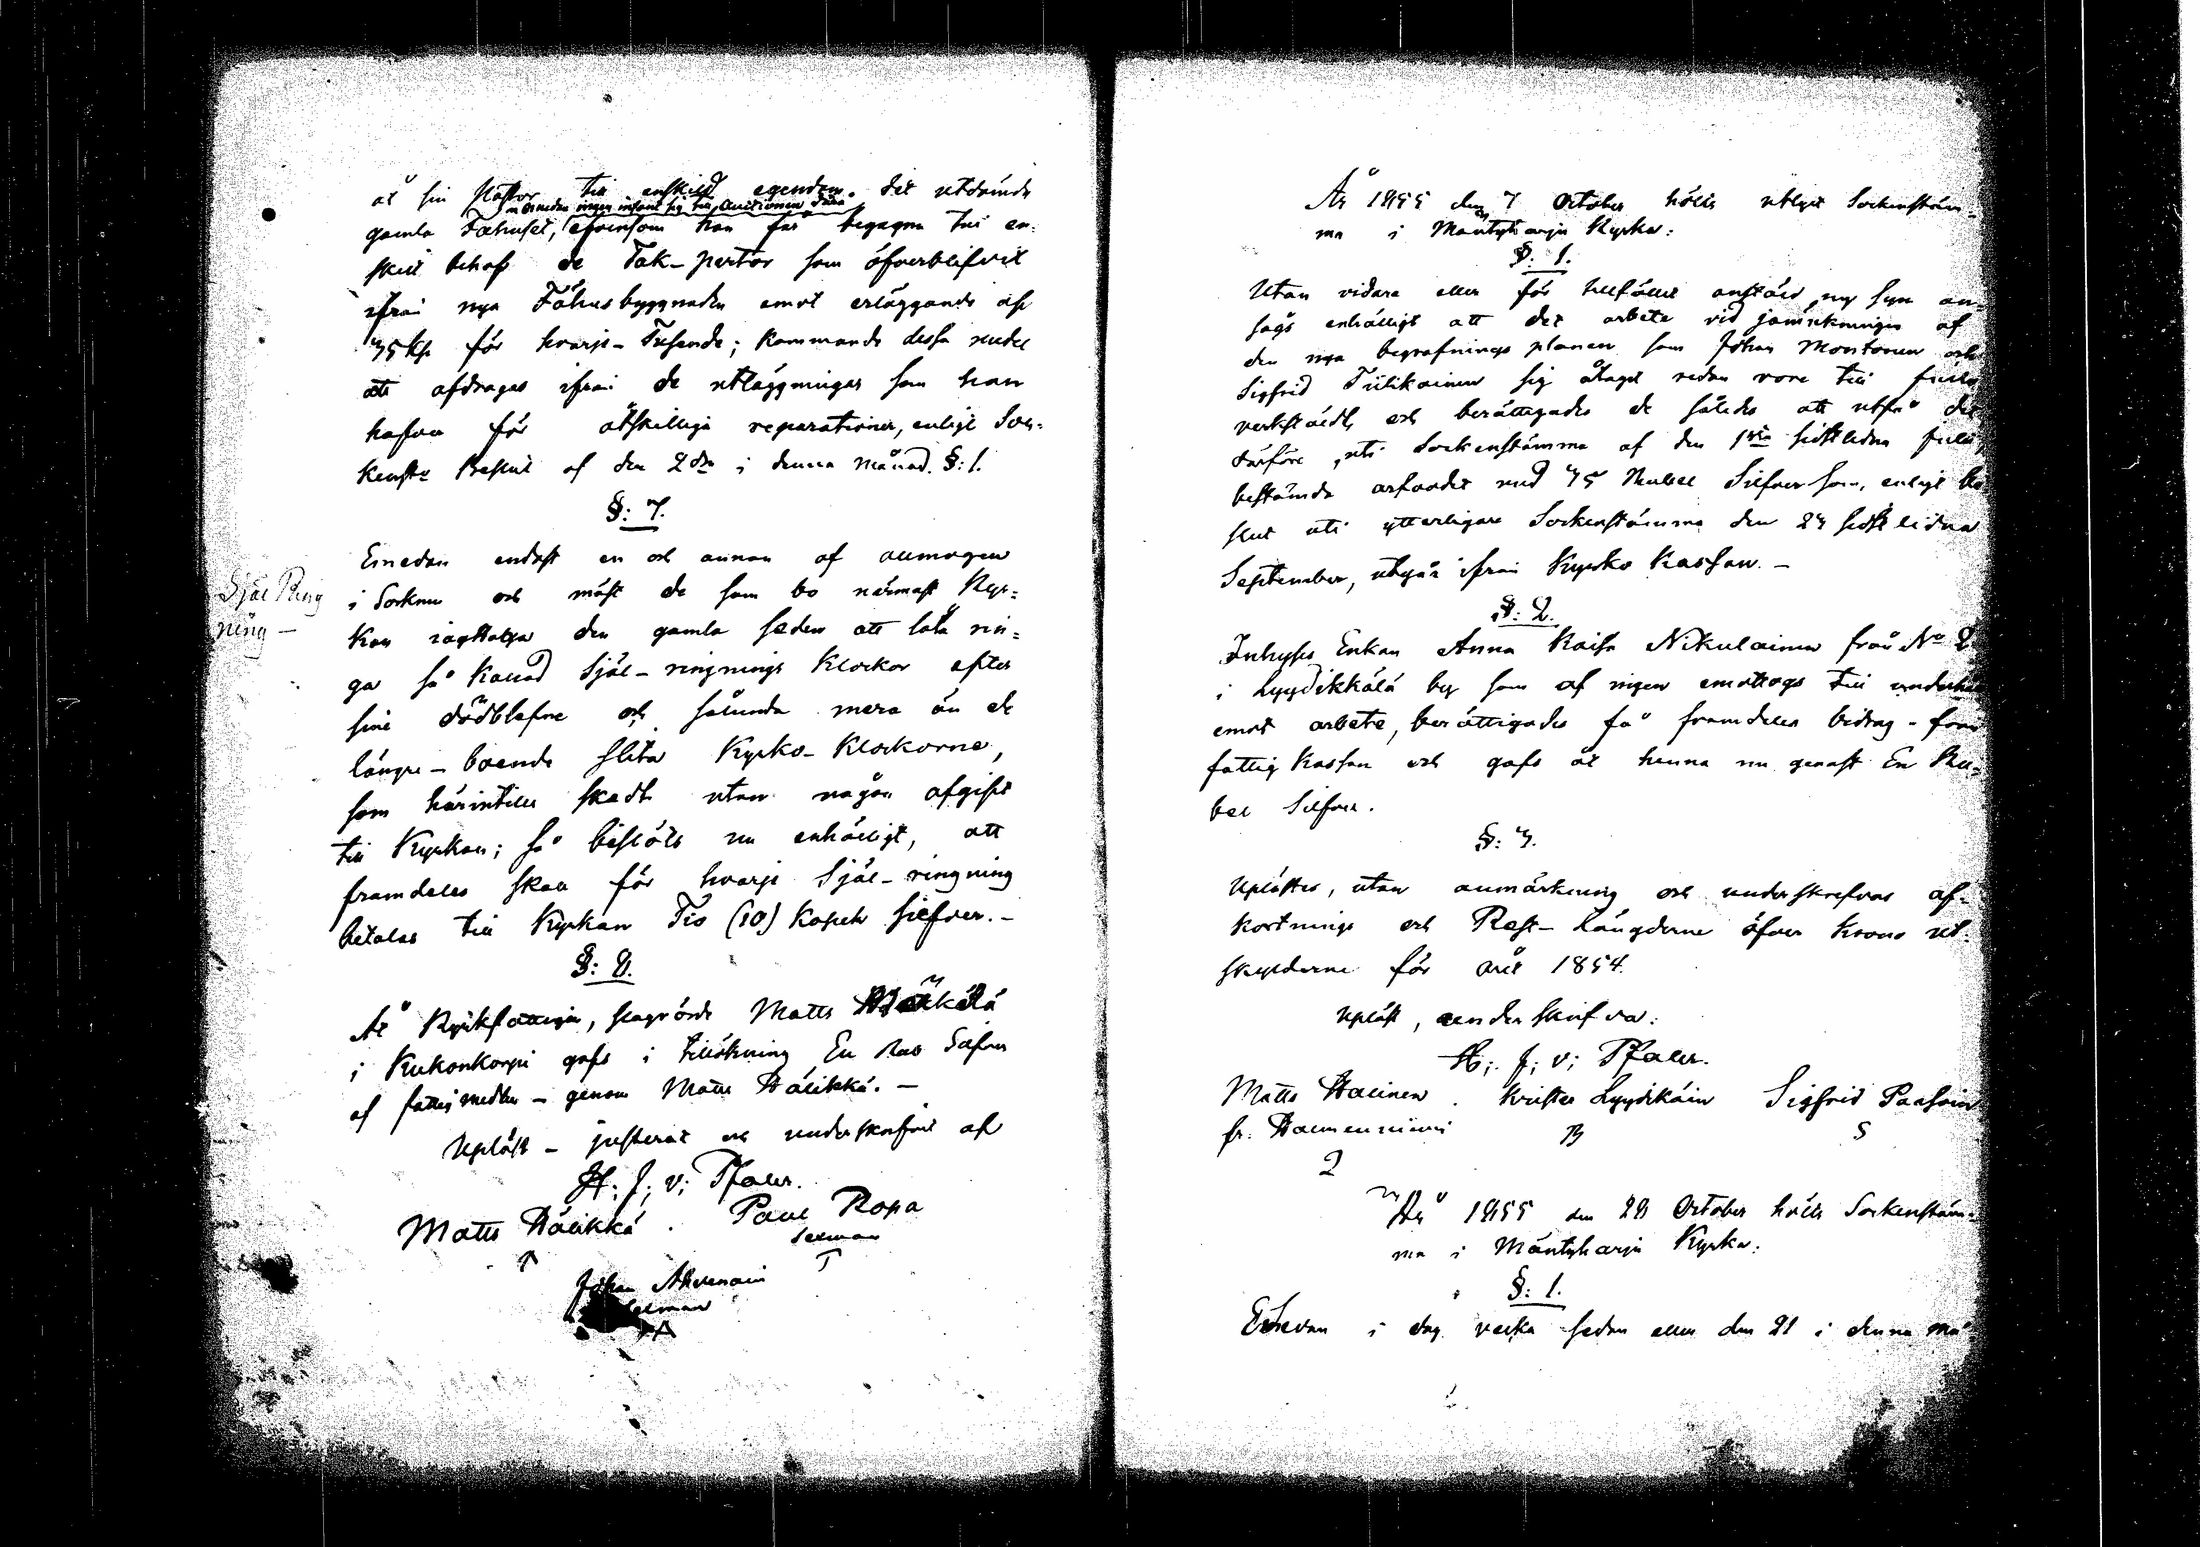 åt sin Pastor till enskild egendom det utdömda
emedan ingen infant sig till Auctionen dåraf
gamla Fähuset, äfvensom han får begagna till en-
skilt behof de Tak-pertor som öfverblifvit
ifrån nya Fähusbyggnaden emot erläggande af
75 kop för hvarje Tusende; kommande dessa medel
att afdragas ifrån de utläggningar som han
hafva för åtskilliga reparationer, enligt Soc-
kenst= Beslut af den 2dra i denna månad. §: 1.
§: 7.
Emedan endast en och annan af allmogen
Själ Ring
ning -
i Socknen och mäst de som bo närmast Kyr=
kan iagttaga den gamla seden att låta rin=
ga så kallad Själ-ringnings Klockor efter
sine dödblefne och sålunda mera än de
längre-boende slita Kyrko-Klockorna,
som härintills skedt utan någon afgift
till Kyrkan; så beslöts nu enhälligt, att
framdeles skall för hvarje Själ-ringning
betalas till Kyrkan Tio (10) Kopek silfver. -
§: 8.
Åt Rysksfattiga, slagrörde Matts
i Kukonkorpi gafs i tillökning En Rub Silfver
af fattigmedlen - genom Matts Hälikkä. -
Upläst - justerat och underskrifvit af
H; J; v; Pfaler.
Matts Hälikkä . Paul Ropa
Sexman
Johan Ahvenain
Sexman
År 1855 den 7 October hölls utlyst Sockenstäm-
ma i Mäntyharju Kyrka:
§: 1.
Utan vidare eller för tillfället anstäld ny syn an-
sågs enhälligt att det arbete vid jämnkningen af
den nya begrafnings planen som Johan Montonen och
Sigfrid Tiilikainen sig åtagit redan vore till fullo
verkstäldt, och berättigades de således att utfå det
därföre, uti Sockenstämma af den 1sta sistledna Julii
bestämda arfvodet med 75 Rubel Silfver som, enligt be-
slut uti ytterligare Sockenstämma den 24 sistledna
September, utgår ifrån Kyrko Kassan. -
§: 2.
Inhyses Enkan Anna Kaisa Nikulainen från No 2
i Lyydikkälä by som af ingen emottogs till underhåll
emot arbete, berättigades få framdeles bidrag från
fattig Kassan och gafs åt henne nu genast En Ru-
bel Silfver.
§: 3.
Uplästes, utan anmärkning och underskrefvos af-
kortnings och Rest-Längderne öfver Krono ut-
skylderne för året 1854.
Upläst, underskrifva:
H; J; v; Pfaler.
Matts Halinen . Krister Lyydikäin Sigfrid Paasoin
fr.
År 1855 den 28 October hölls Sockenstäm-
ma i Mäntyharju Kyrka.
§: 1.
Emedan i dag vecka sedan eller den 21 i denna må-